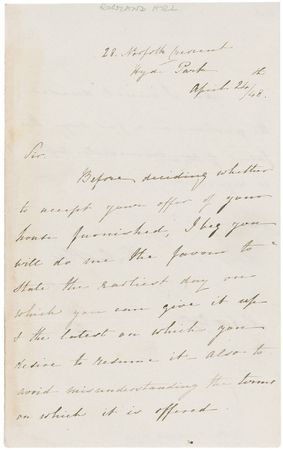 ROWLAND HILL
28. Norfolk Crescent
Hyde Park
April 24th/48.
Sir.
Before deciding whether
to accept your offer of your
house furnished, I beg you
will do me the favour to
state the earliest day on
which you can give it up
& the latest on which you
desire to resume it also to
avoid misunderstanding the terms
on which it is offered.